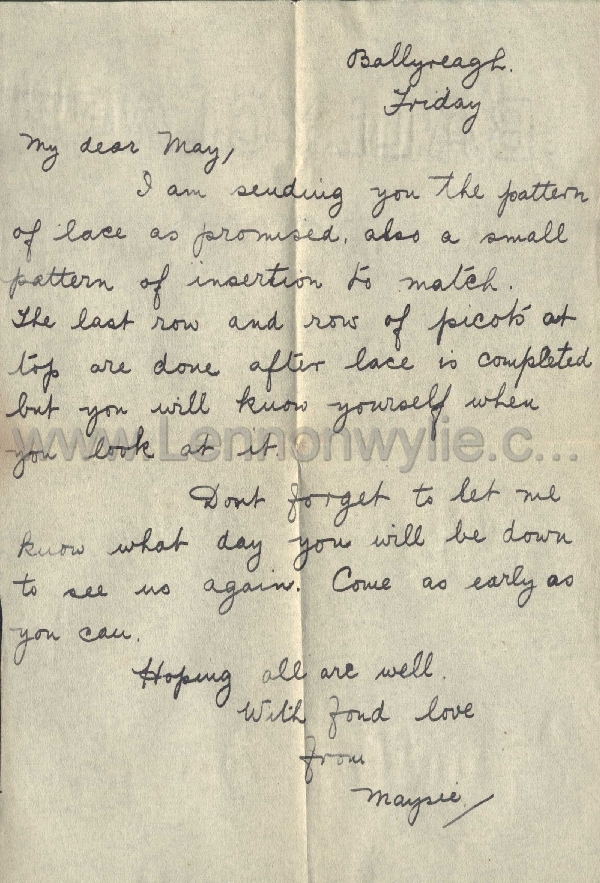 Ballyreagh.
Friday
My dear May,
I am sending you the pattern
of lace as promised, also a small
pattern of insertion to match.
The last row and row of picots at
top are done after lace is completed
but you will know yourself when
you look at it.
www.Lennonwylie.c...
Dont forget to let me
know what day you will be down
to see us again. Come as early as
you can.
Hoping all are well.
With fond love
from
Maysie